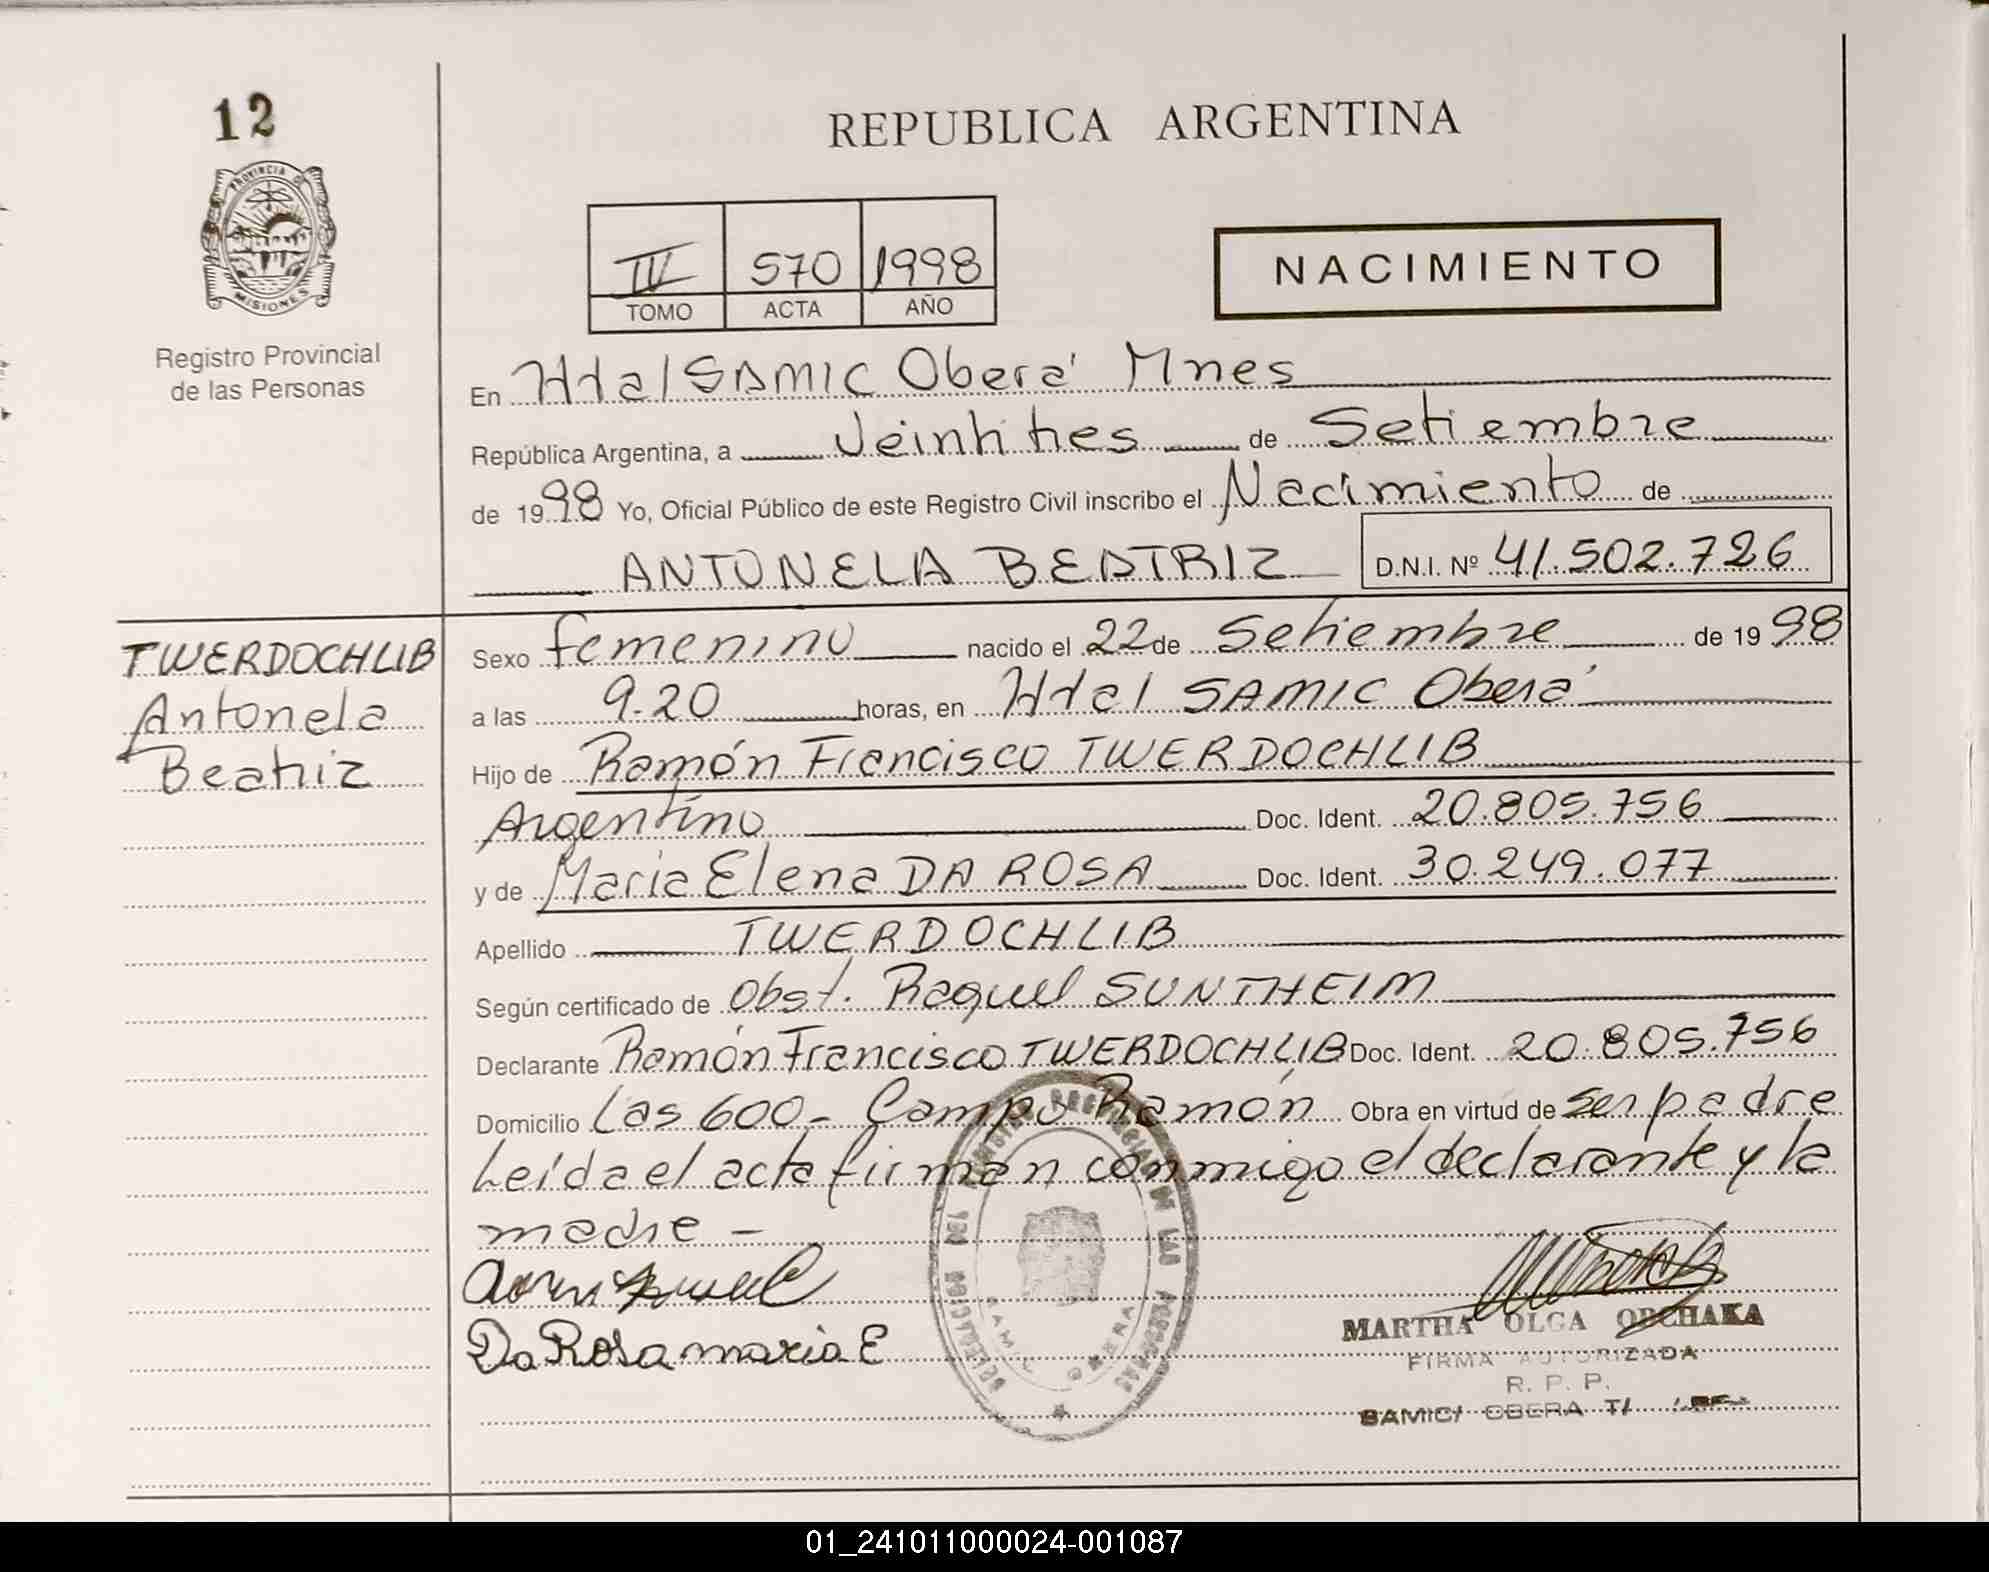 12
REPUBLICA ARGENTINA
PROVINCIA D
MISIONES
Registro Provincial
de las Personas
IV 570 1998
TOMO ACTA AÑO
NACIMIENTO
En Htal SAMIC Oberá Mnes
República Argentina, a Veintitres de Setiembre
de 1998 Yo, Oficial Público de este Registro Civil inscribo el Nacimiento de
ANTONELA BEATRIZ D.N.I. Nº 41.502.726
TWERDOCHLIB
Antonela
Beatriz
Sexo femenino nacido el 22 de Setiembre de 1998
a las 9.20 horas, en Htal SAMIC Oberá
Hijo de Ramón Francisco TWERDOCHLIB
Argentino Doc. Ident. 20.805.756
y de Maria Elena DA ROSA Doc. Ident. 30.249.077
Apellido TWERDOCHLIB
Según certificado de Obst. Raquel SUNTHEIM
Declarante Ramón Francisco TWERDOCHLIB Doc. Ident. 20.805.756
Domicilio Las 600 - Campo Ramón Obra en virtud de ser padre
Leída el acta firman conmigo el declarante y la
madre -
Da Rosa maria E
MARTHA OLGA OPCHAKA
FIRMA AUTORIZADA
R. P. P.
SAMIC/ OBERA T/
01_241011000024-001087